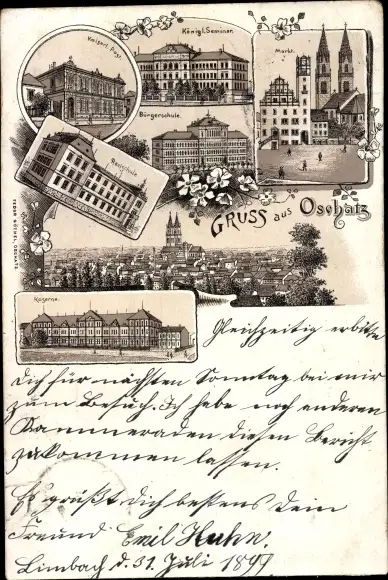 Kaiserl. Post.
Königl. Seminar.
Markt.
Bürgerschule.
Realschule.
GRUSS aus Oschatz
Kaserne.
Gleichzeitig erbitte
Dich für nächsten Sonntag bei mir
zum Besuch. Ich habe noch anderen
Kammeraden diesen Bericht
zukommen lassen.
Es grüßt Dich bestens Dein
Freund Emil Huhn.
Limbach d. 31. Juli 1899